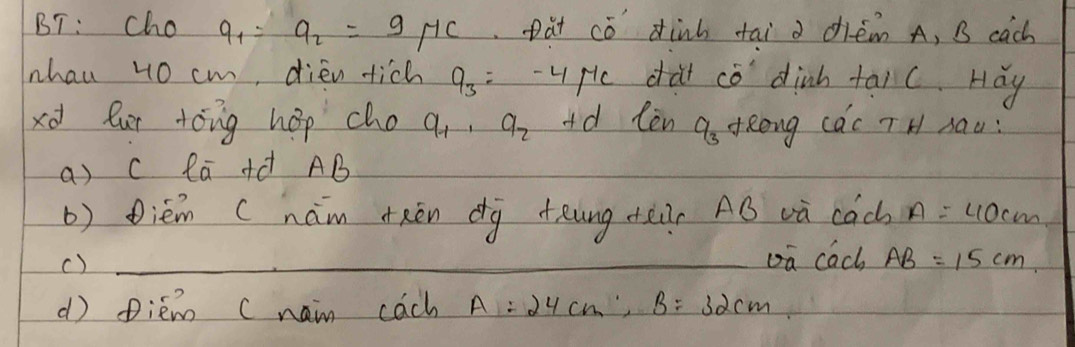 BT: Cho q₁ = q₂ = 9 μC. Đặt cố định tại 2 điểm A, B cách
nhau 40 cm, điện tích q₃ = -4 μC đặt cố định tại C. Hãy
xđ lực tổng hợp cho q₁, q₂ td lên q₃ trong các TH sau:
a) C là tđ AB
b) Điểm C nằm trên đg trung trực AB và cách A = 40cm.
c) ____________ và cách AB = 15 cm.
d) Điểm C nằm cách A = 24 cm; B = 32cm.